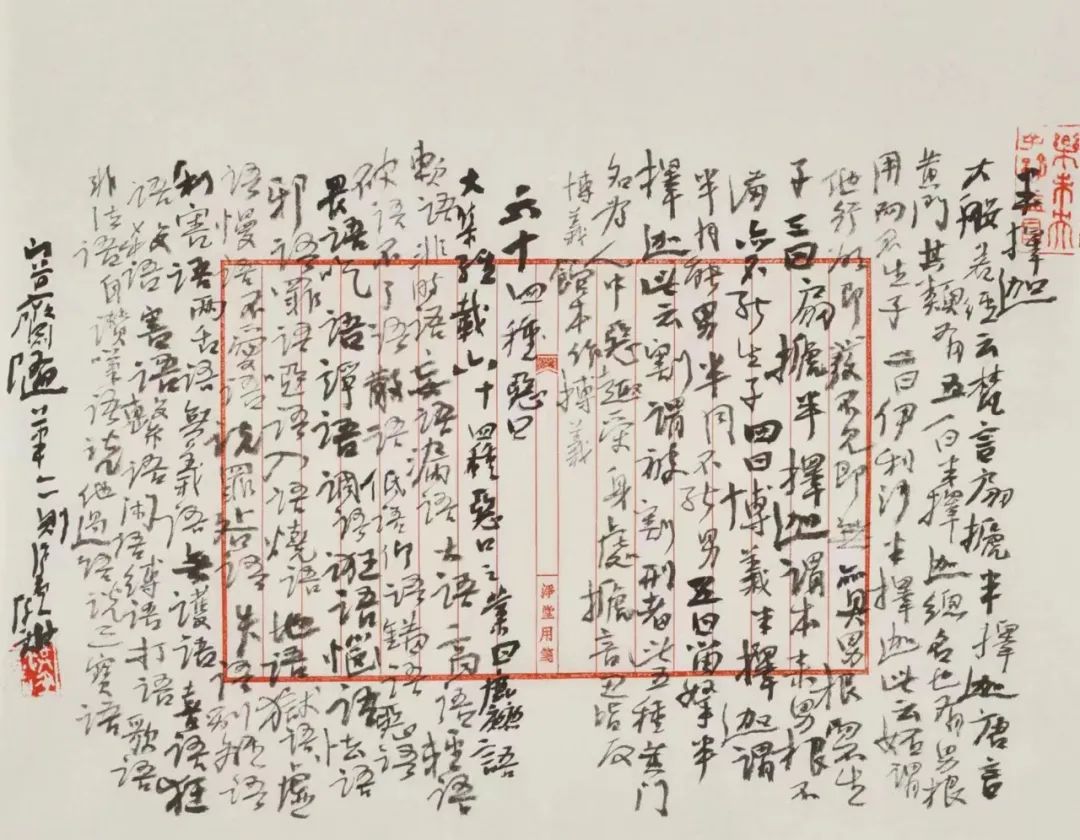 半擇迦
大般若經云梵言扇搋半擇迦唐言
黃門其類有五一曰半擇迦總名也有男根
用而不生子二曰伊利沙半擇迦此云妬謂
他行欲即發不見即無亦具男根而不生
子三曰扇搋半擇迦謂本來男根不
滿亦不能生子四曰博義半擇迦謂
半月能男半月不能男五曰留拏半
擇迦此云割謂被割刑者此五種黃門
名為人中惡趣受身處搋音丑皆反
博義館本作搏義
六十四種惡口
大集經載六十四種惡口之業曰麁語
軟語非時語妄語漏語大語高語輕語
破語不了語散語低語仰語錯語惡語
畏語吃語諍語調語誑語惱語怯語
邪語罪語啞語入語燒語地語獄語虛
語慢語不愛語說罪咎語失語別離語
利害語兩舌語無義語無護語喜語狂
語殺語害語繫語閑語縛語打語歌語
非法語自讚嘆語說他過語說三寶語
容齋隨筆二則
淨堂用箋